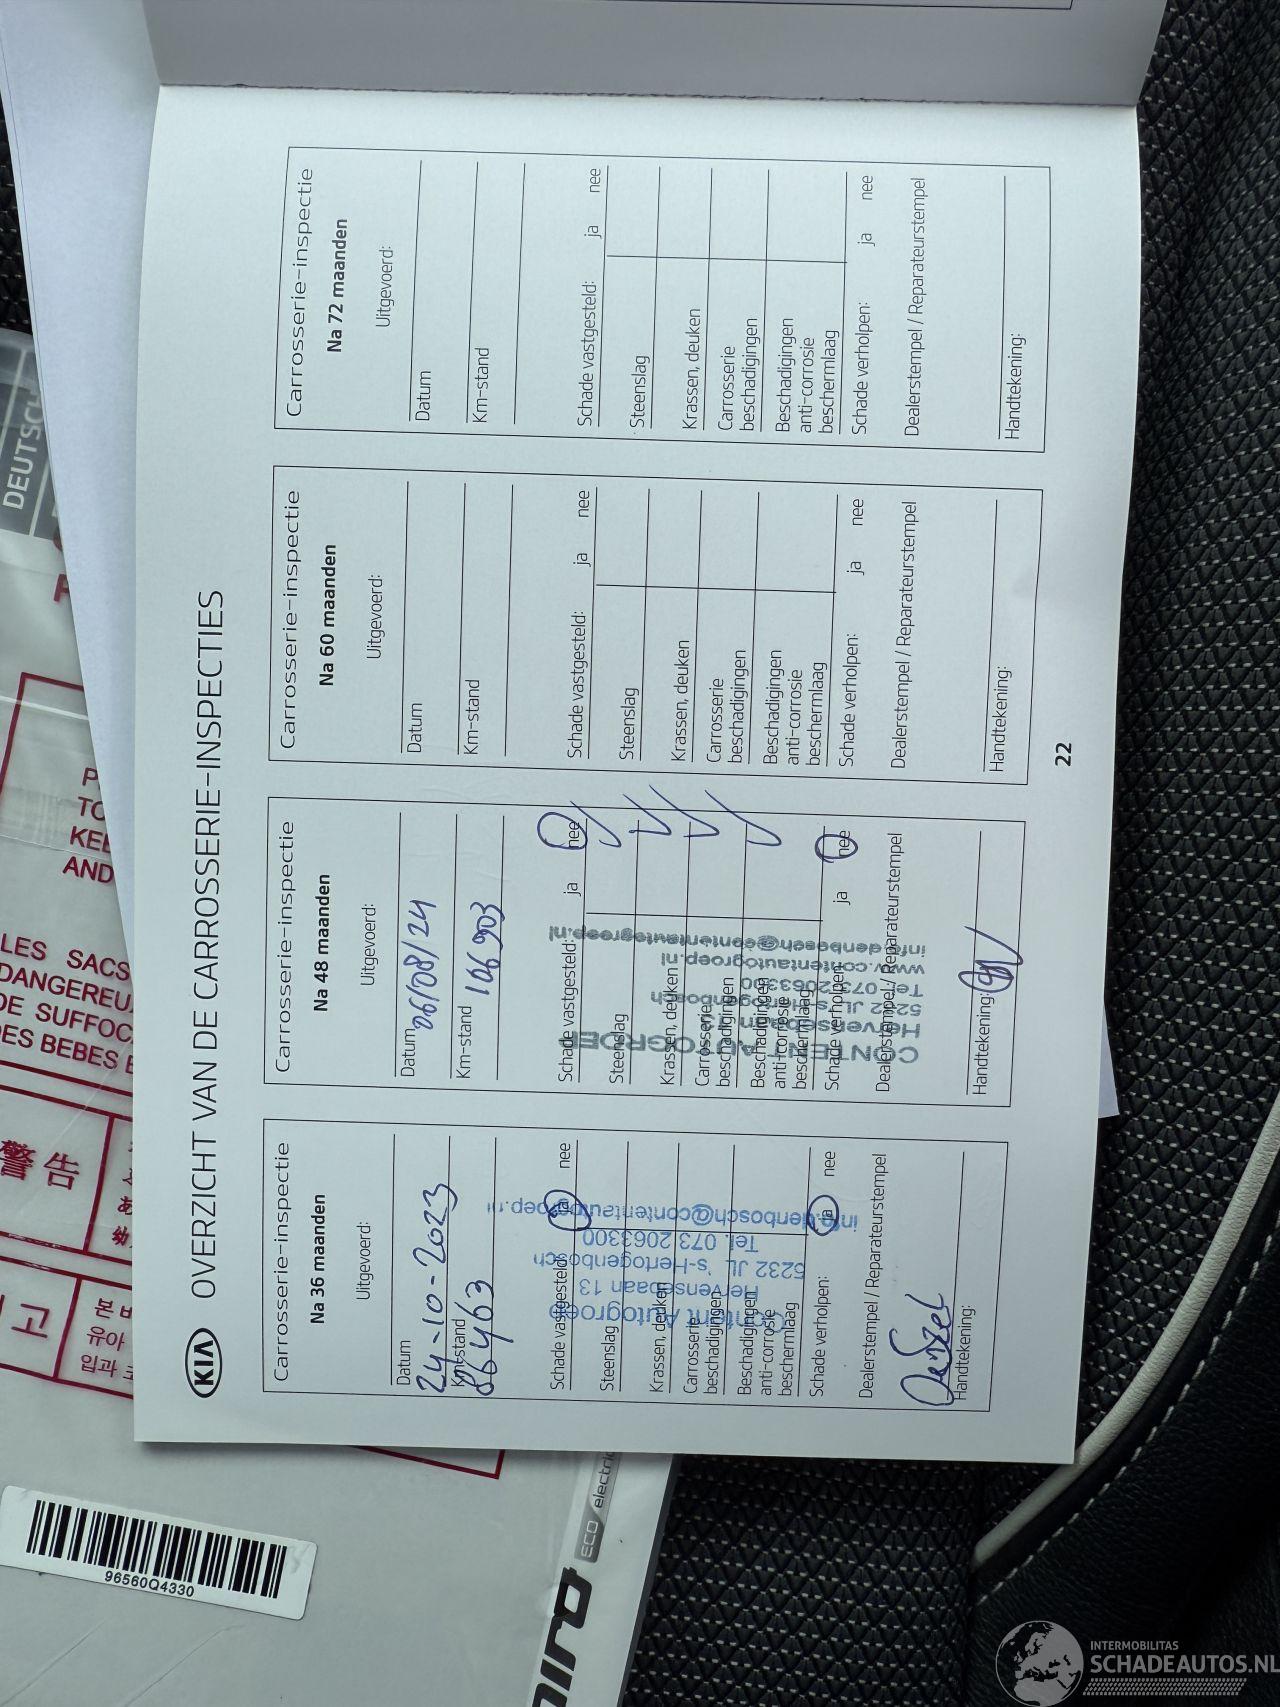 KIA OVERZICHT VAN DE CARROSSERIE-INSPECTIES
Carrosserie-inspectie
Na 36 maanden
Uitgevoerd:
Datum
24-10-2023
Km-stand
86463
Schade vastgesteld: ja nee
Steenslag
Krassen, deuken
Carrosserie
beschadigingen
Beschadigingen
anti-corrosie
beschermlaag
Schade verholpen: ja nee
Dealerstempel / Reparateurstempel
Handtekening:
Content Autogroep
Hervensebaan 13
5232 JL 's-Hertogenbosch
Tel. 073 2063300
info.denbosch@contentautogroep.nl
Carrosserie-inspectie
Na 48 maanden
Uitgevoerd:
Datum
26/08/24
Km-stand
106903
Schade vastgesteld: ja nee
Steenslag
Krassen, deuken
Carrosserie
beschadigingen
Beschadigingen
anti-corrosie
beschermlaag
Schade verholpen: ja nee
Dealerstempel / Reparateurstempel
Handtekening:
CONTENT AUTOGROEP
Hervensebaan
5232 JL 's-Hertogenbosch
Tel. 073 2063300
www.contentautogroep.nl
info.denbosch@contentautogroep.nl
Carrosserie-inspectie
Na 60 maanden
Uitgevoerd:
Datum
Km-stand
Schade vastgesteld: ja nee
Steenslag
Krassen, deuken
Carrosserie
beschadigingen
Beschadigingen
anti-corrosie
beschermlaag
Schade verholpen: ja nee
Dealerstempel / Reparateurstempel
Handtekening:
Carrosserie-inspectie
Na 72 maanden
Uitgevoerd:
Datum
Km-stand
Schade vastgesteld: ja nee
Steenslag
Krassen, deuken
Carrosserie
beschadigingen
Beschadigingen
anti-corrosie
beschermlaag
Schade verholpen: ja nee
Dealerstempel / Reparateurstempel
Handtekening:
22
DEUTSCH
AND
SACS
DE
BEBES
警告
고
유아
96560Q4330
ECO electric
INTERMOBILITAS
SCHADEAUTOS.NL